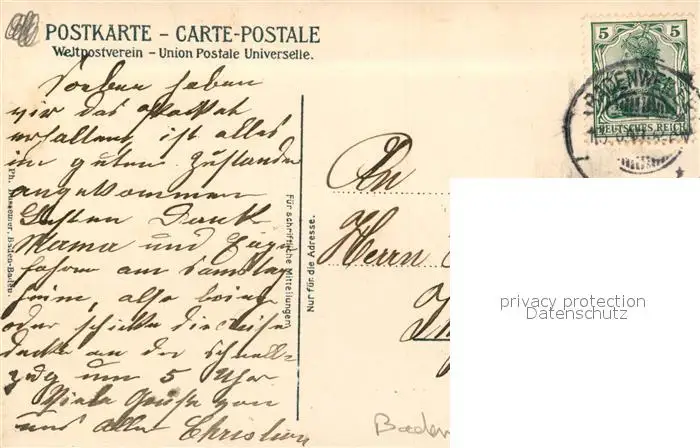 POSTKARTE – CARTE-POSTALE
Weltpostverein – Union Postale Universelle.
Soeben haben
wir das Packet
erhalten, ist alles
im guten Zustande
angekommen
Besten Dank
Mama und
fahren am Samstag
heim, also bringe
oder schicke die Reise
decke an den Schnell-
zug um 5 Uhr
Viele Grüsse von
uns allen Christian
Ph. Baden-Baden.
Für schriftliche Mitteilungen
Nur für die Adresse.
5 5
BADENWEI
DEUTSCHES REICH
An
Herrn
privacy protection
Datenschutz
Baden